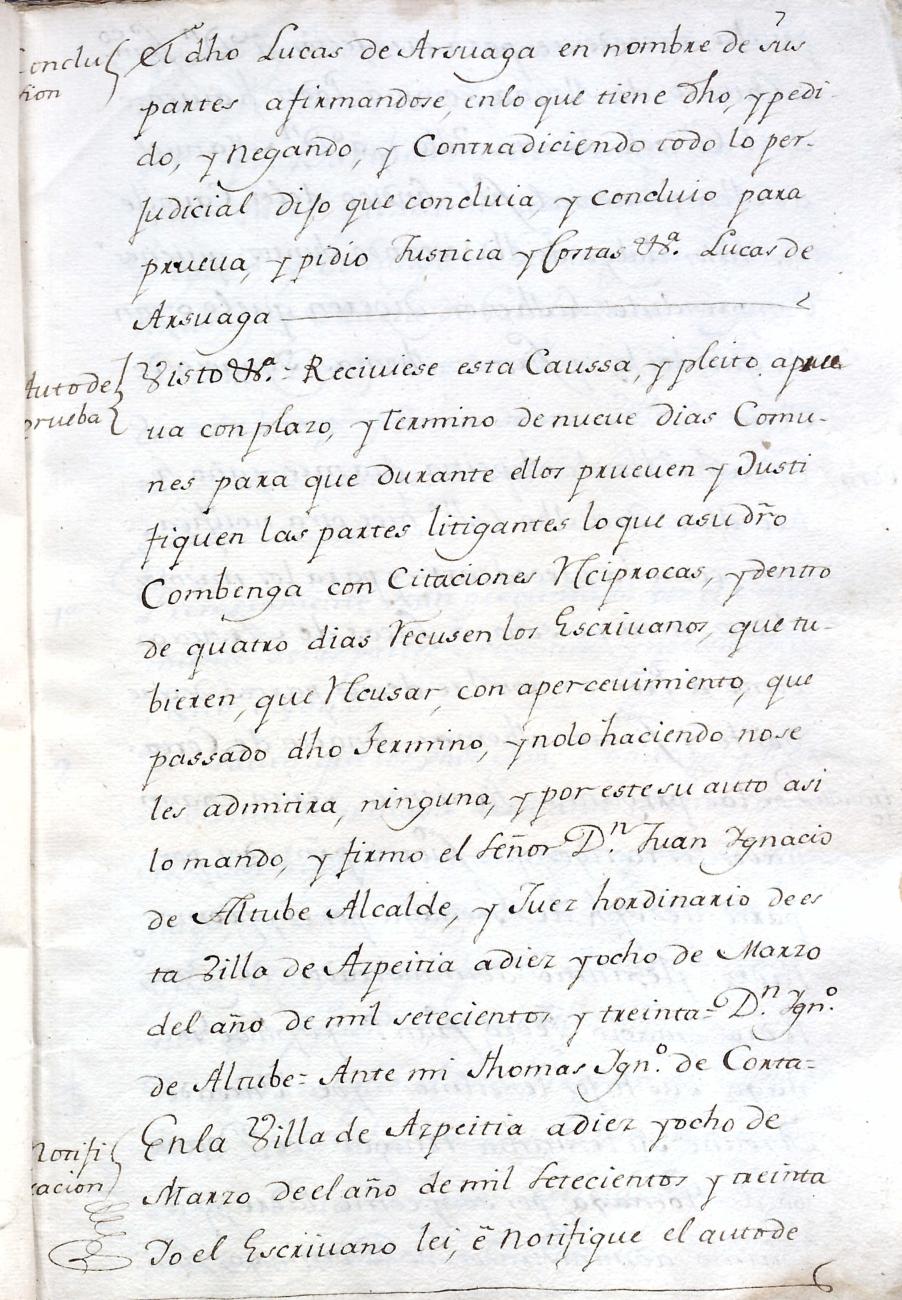 Conclu
sion
El dho Lucas de Arsuaga en nombre de sus
partes afirmandose, en lo que tiene dho, y pedi-
do, y Negando, y Contradiciendo todo lo per-
Judicial dijo que concluia, y Concluio para
prueva, y pidio Justicia y Costas &ª. Lucas de
Arsuaga
Auto de
prueba
Visto &ª.- Reciviese esta Caussa, y pleito, a prue
va con plazo, y Termino de nueve dias Comu-
nes para que durante ellos prueven y Justi
fiquen las partes litigantes lo que a su dro
Combenga con Citaciones Reciprocas, y dentro
de quatro dias Recusen los Escrivanos, que tu-
bieren, que Recusar, con apercevimiento, que
passado dho Termino, y no lo haciendo no se
les admitira, ninguna, y por este su auto asi
lo mando, y firmo el Señor Dn. Juan Ygnacio
de Altube Alcalde, y Juez hordinario de es
ta Villa de Azpeitia a diez y ocho de Marzo
del año de mil setecientos y treinta= Dn. Ygnº.
de Altube= Ante mi Thomas Ygnº. de Corta=
Notifi
cacion
En la Villa de Azpeitia a diez y ocho de
Marzo de el año de mil Setecientos y treinta
Yo el Escrivano lei, è Notifique el auto de